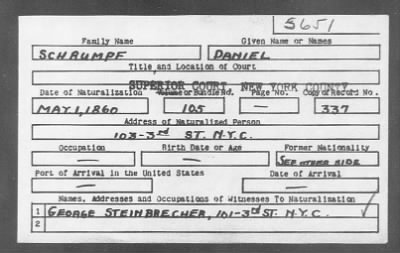 5651
Family Name Given Name or Names
SCHRUMPF DANIEL
Title and Location of Court
SUPERIOR COURT NEW YORK COUNTY
Date of Naturalization Volume or Bundle No. Page No. Copy of Record No.
MAY 1, 1860 105 — 337
Address of Naturalized Person
103-3rd ST. N.Y.C.
Occupation Birth Date or Age Former Nationality
— — SEE OTHER SIDE
Port of Arrival in the United States Date of Arrival
— —
Names, Addresses and Occupations of Witnesses To Naturalization
1 GEORGE STEINBRECHER, 101-3rd ST. N.Y.C.
2